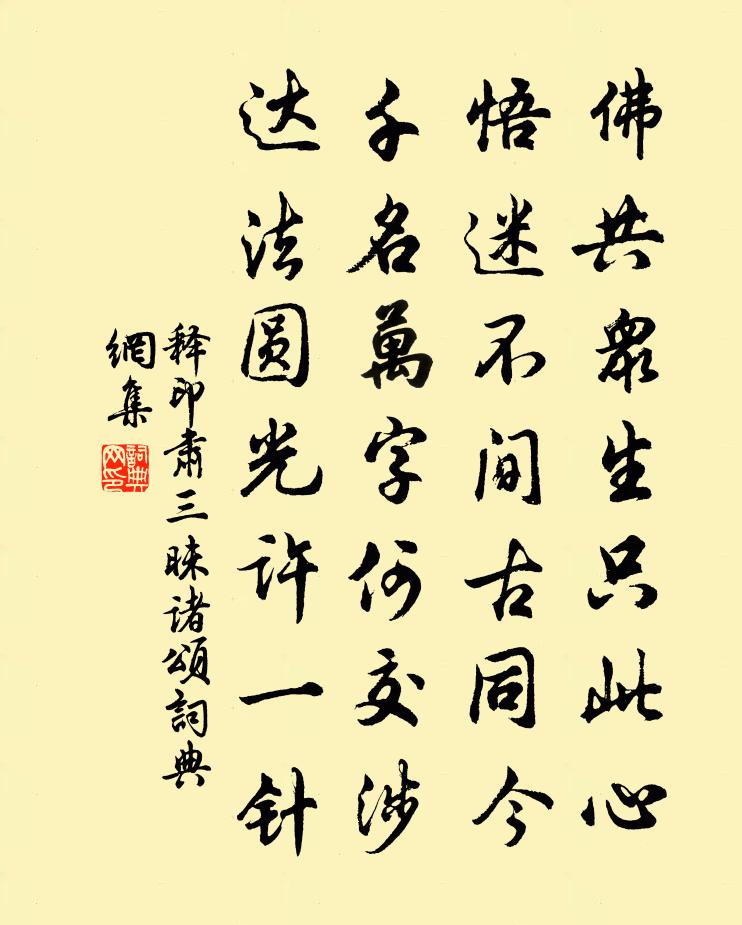 佛共眾生只此心
悟迷不间古同今
千名萬字何交涉
达法圆光许一针
释印肃三昧诸颂詞典
網集
詞典
网印